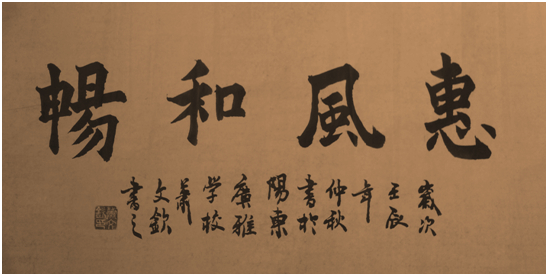 惠風和暢
歲次
壬辰
年
仲秋
書於
陽東
廣雅
学校
蕭
文欽
書之